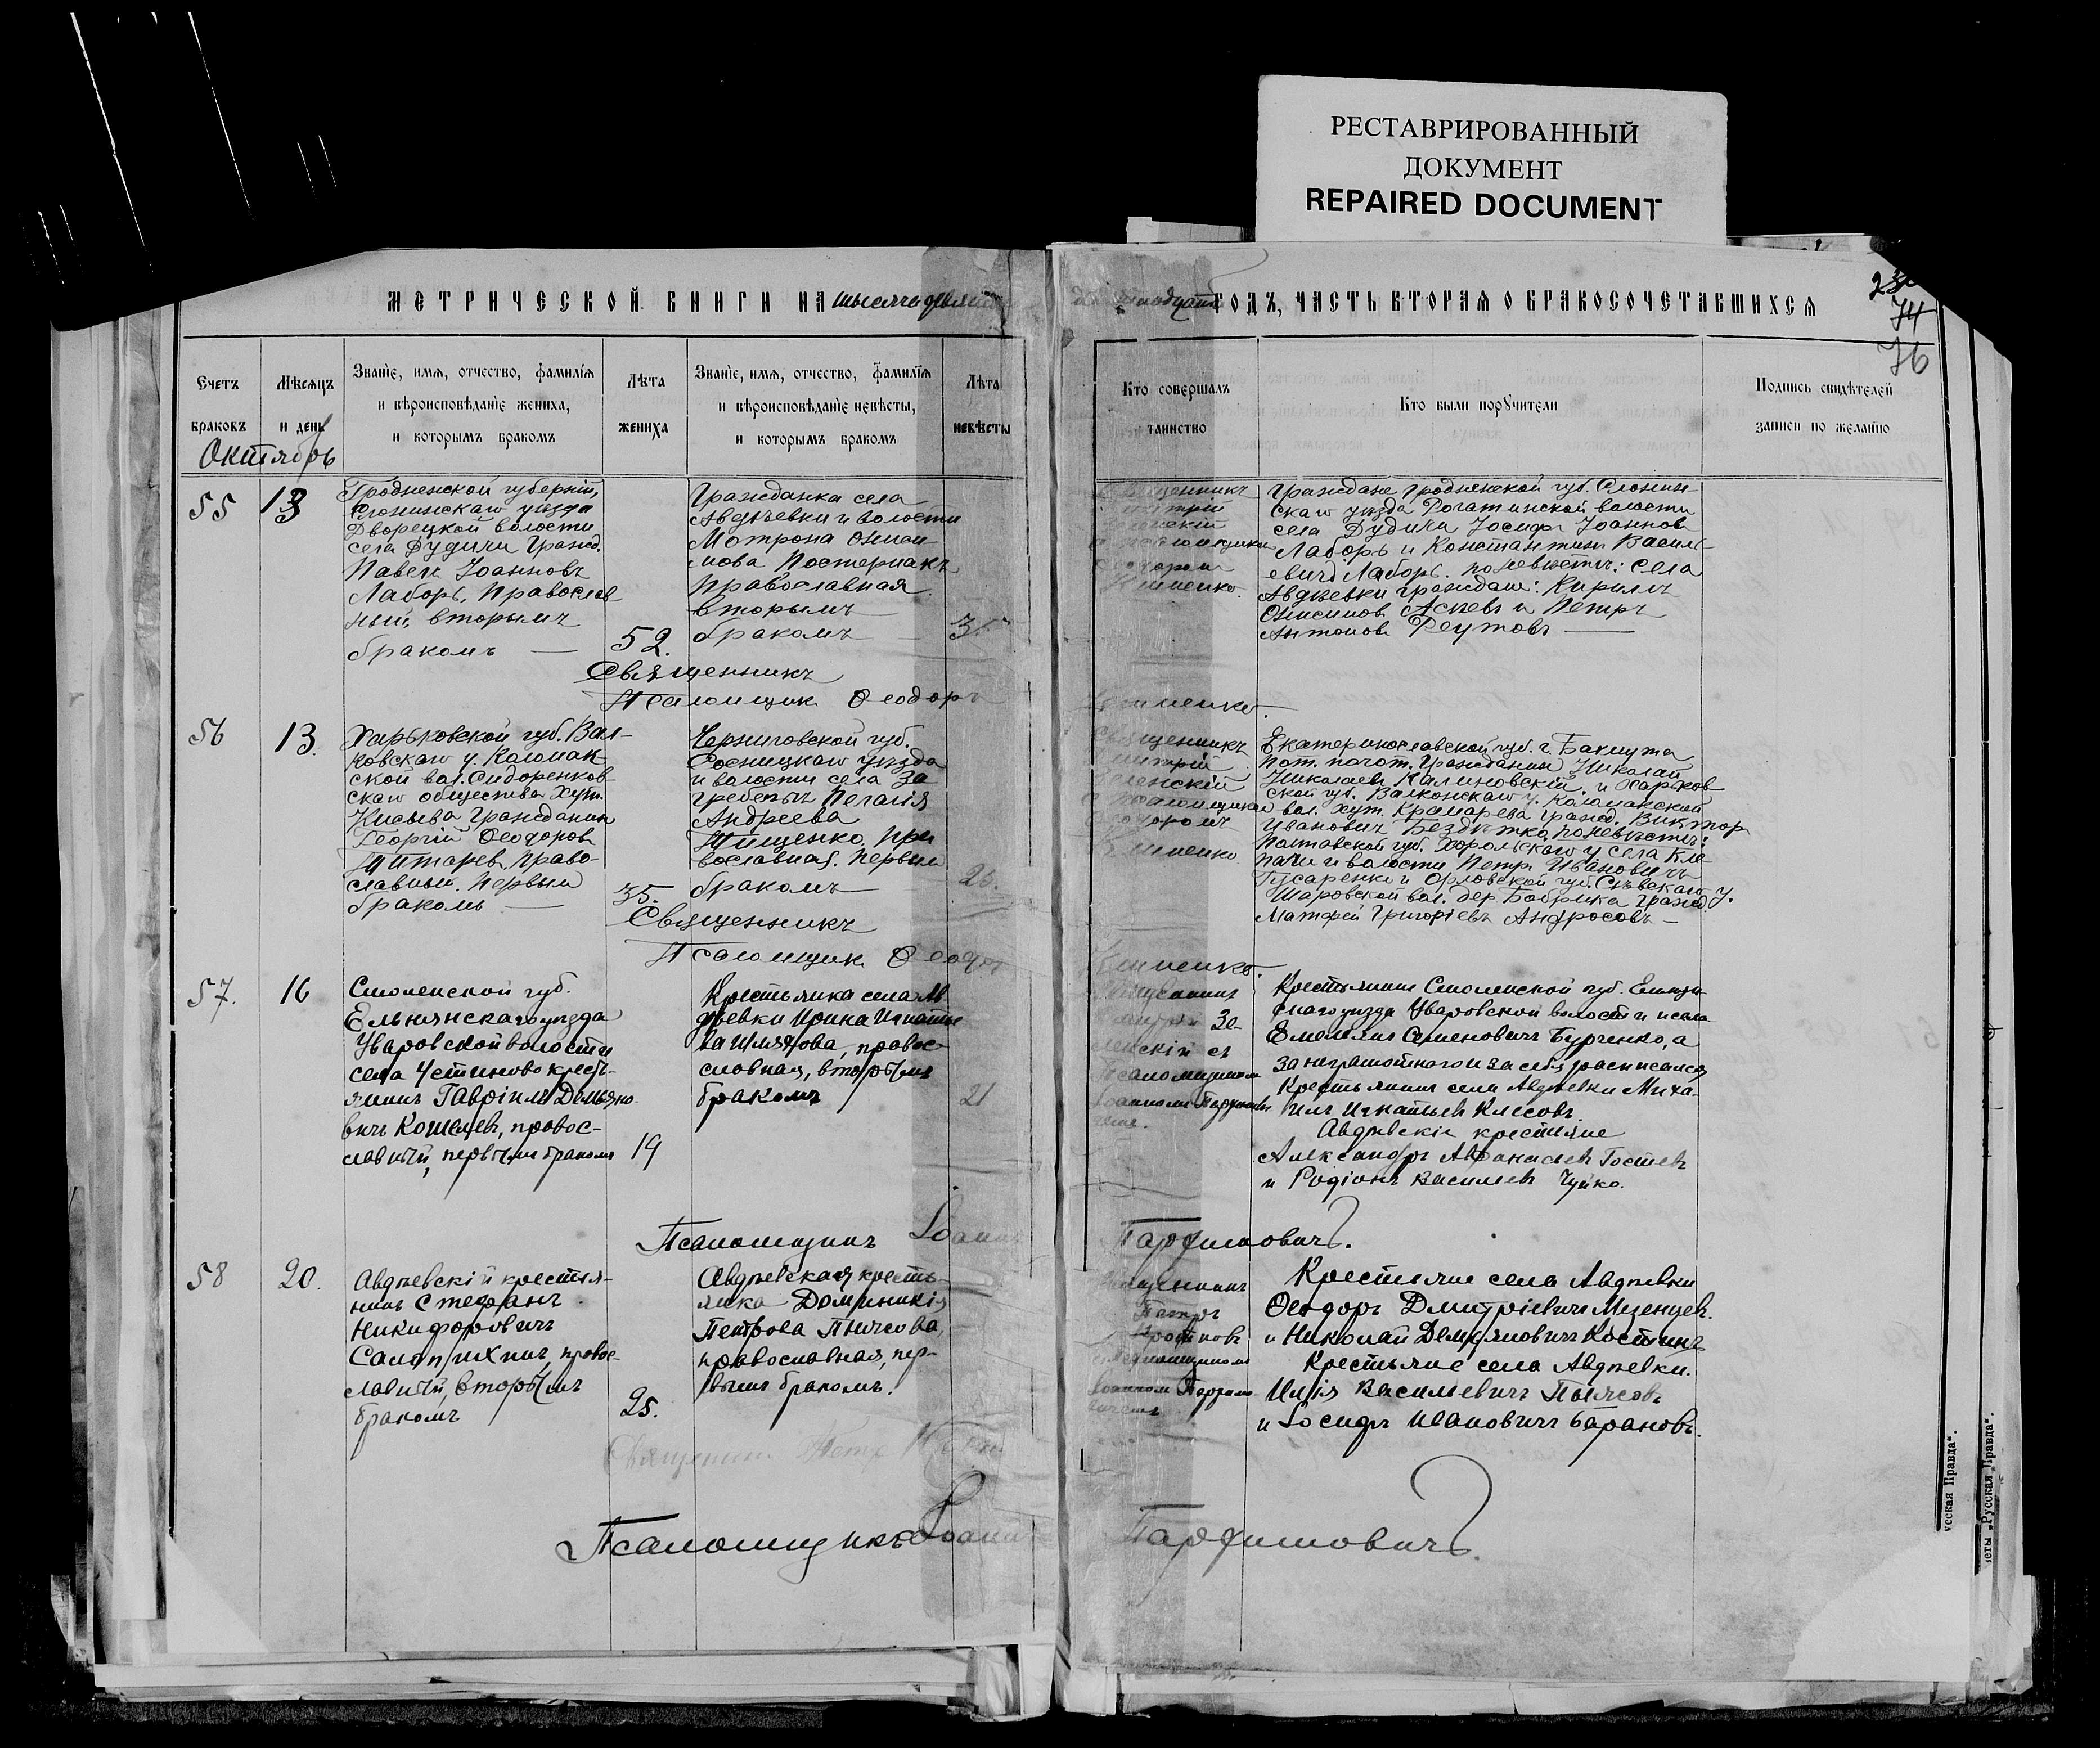 РЕСТАВРИРОВАННЫЙ
ДОКУМЕНТ
REPAIRED DOCUMENT
МЕТРИЧЕСКОЙ КНИГИ НА тысяча девять
ГОДЪ, ЧАСТЬ ВТОРАЯ О БРАКОСОЧЕТАВШИХСЯ
74
76
Счетъ
браковъ
Мѣсяцъ
и день
Званіе, имя, отчество, фамилія
и вѣроисповѣданіе жениха,
и которымъ бракомъ
Лѣта
жениха
Званіе, имя, отчество, фамилія
и вѣроисповѣданіе невѣсты,
и которымъ бракомъ
Лѣта
невѣсты
Кто совершалъ
таинство
Кто были поручители
Подпись свидѣтелей
записи по желанію
Октябрь
55
13
Гродненской губерніи,
Слонимскаго уѣзда
Дворецкой волости
села Дудичи Гражд.
Павелъ Іоанновъ
Лаборь, Православ
ный, вторымъ
бракомъ
52.
Гражданка села
Авдѣевки и волости
Мотрона Онисимова
Постернакъ
Православная
вторымъ
бракомъ
Граждане Гродненской губ. Слоним-
скаго уѣзда Роготинской волости
села Дудичи Іосифъ Іоаннов
Лаборь и Константинъ Василь-
евичъ Лаборь. по невѣстѣ: села
Авдѣевки граждане: Кириллъ
Онисимов и Петръ
Антонов Реутовъ
Священникъ
Псаломщикъ Ѳеодоръ
56
13.
Харьковской губ. Вал-
ковскаго у. Коломак-
ской вол. Сидоренков-
скаго общества Хут.
Кисыева Гражданинъ
Георгій Ѳеодоров
Титарев, Право-
славный. Первым
бракомъ
35.
Черниговской губ.
Сосницкаго уѣзда
и волости села За
гребелья Пелагія
Андреева
Тищенко, Пра
вославная, Первым
бракомъ
Священникъ
Екатеринославской губ. г. Бахмута
пот. почот. Гражданин Николай
Николаев Калиновскій и Харьков
ской губ. Валковскаго у. Коломакской
вол. хут. Крамарева гражд. Виктор
Иванович Бездѣтко по невѣстѣ:
Полтавской губ. Хорольскаго у. села
и волости Петр Ивановичъ
Писаренко и Орловской губ. Сѣвскаго у.
Шаровской вол. дер. Бобрика гражд.
Матфей Григоріевъ Андросовъ
Священникъ
Псаломщикъ
57.
16
Смоленской губ.
Ельнинскаго уѣзда
Уваровской волости
села Устиново кресть-
янинъ Гавріилъ Демьяно-
вичъ Кошелев, правос-
славный, первымъ бракомъ
19
Крестьянка села Ав
дѣевки Ирина Игнатье
ва Шляхова, правос-
славная, вторымъ
бракомъ
21
Крестьянинъ Смоленской губ. Ельнин-
скаго уѣзда Уваровской волости и села
Емельянъ Семеновичъ Бурченко, а
за неграмотного и за себя расписался
крестьянинъ села Авдѣевки Миха-
илъ Игнатьев Клесовъ.
Авдѣевскіе крестьяне
Александръ Аѳанасьев Гостевъ
и Родіонъ Васильев Чуйко.
Псаломщикъ Іоаннъ
Парфимовичъ.
58
20.
Авдѣевскій крестья-
нинъ Стефанъ
Никифоровичъ
правос-
славный, вторымъ
бракомъ
25.
Авдѣевская кресть-
янка Доминикія
Петрова Плясова,
православная, пер-
вымъ бракомъ.
Священникъ
Петръ
Крестьяне села Авдѣевки
Ѳеодоръ Дмитріевичъ Мезенцев.
и Николай Демьяновичъ Костинъ
Крестьяне села Авдѣевки.
Илія Васильевичъ Плясовъ
и Іосифъ Ивановичъ Барановъ.
Псаломщикъ Іоаннъ
Парфимовичъ.
усская Правда".
еты „Русская Правда".